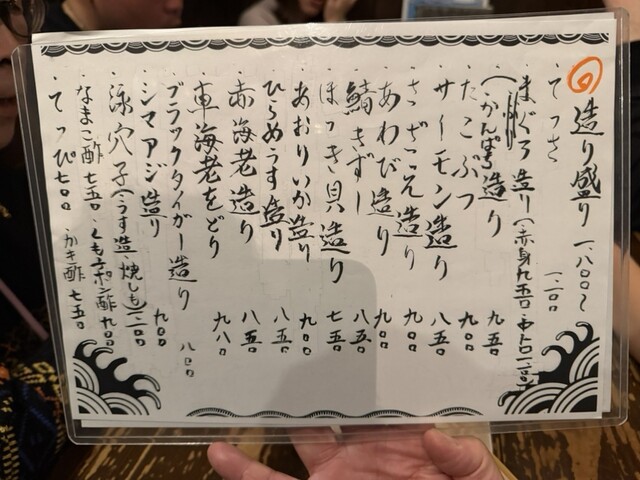 造り盛り 一、八〇〇〜
・てっさ 一、二〇〇
・まぐろ造り(赤身九五〇・中トロ一、二〇〇)
(かんぱち造り 九五〇
・たこぶつ 九〇〇
・サーモン造り 八五〇
・さざえ造り 九〇〇
・あわび造り 九〇〇
・鯖きずし 八五〇
・ほっき貝造り 七五〇
・あおりいか造り 九〇〇
・ひらめうす造り 八五〇
・赤海老造り 八五〇
・車海老をどり 九八〇
・ブラックタイガー造り 八〇〇
・シマアジ造り 九〇〇
・泳穴子(うす造・焼しも)一、二〇〇
・なまこ酢 七五〇 くもこポン酢 九〇〇
・てっぴ 七〇〇 かき酢 七五〇